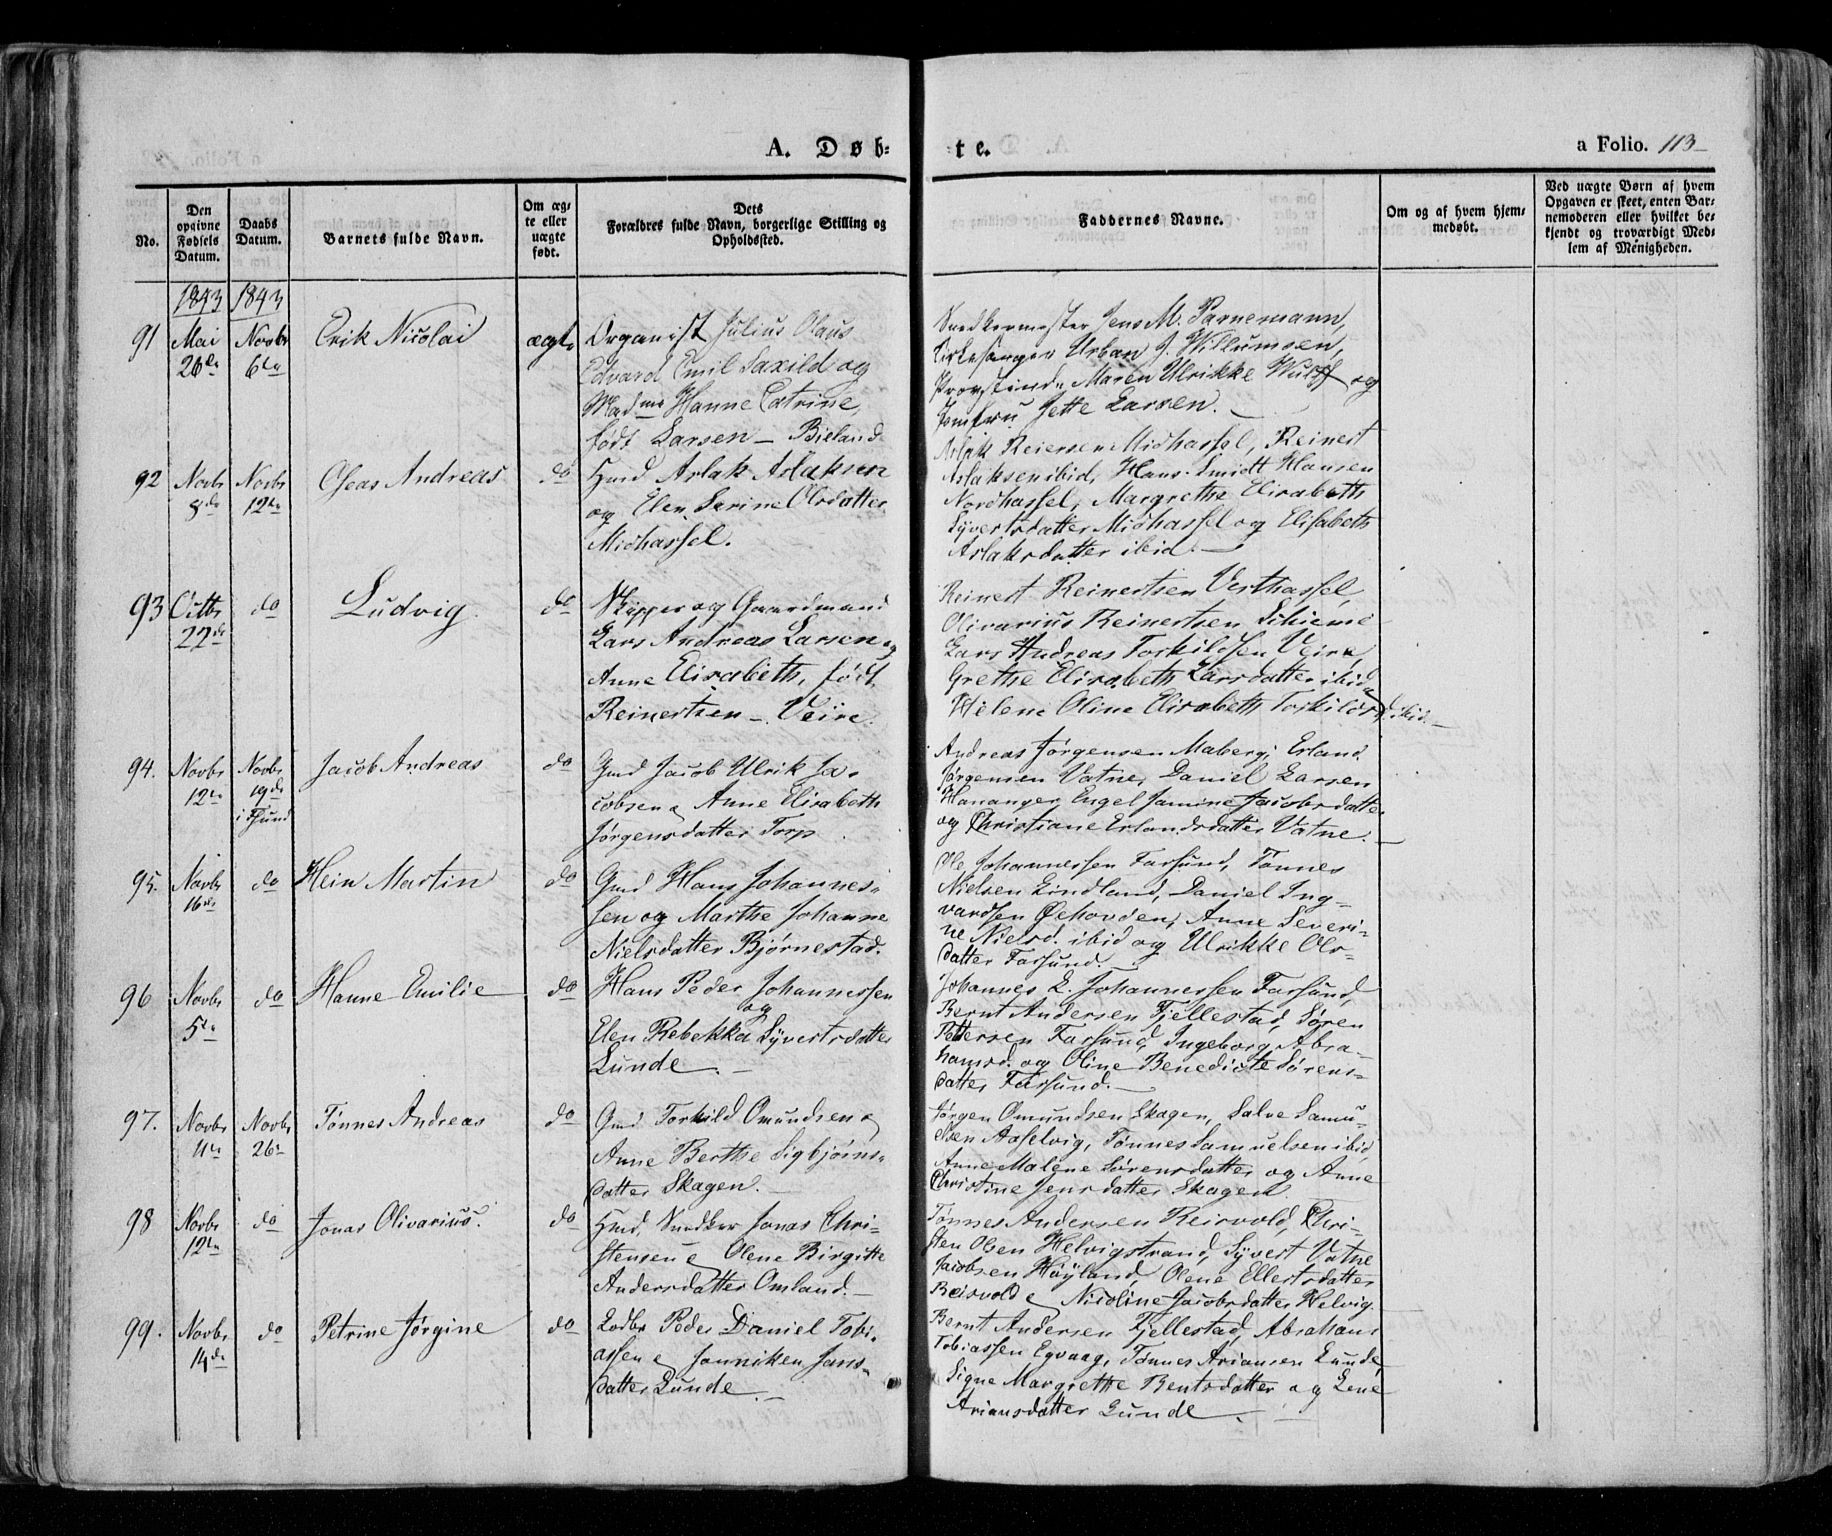 A. Døb=
te.
a Folio. 113
No.
Den opgivne Fødsels Datum.
Daabs Datum.
Barnets fulde Navn.
Om æg= te eller uægte født.
Dets Forældres fulde Navn, borgerlige Stilling og Opholdssted.
Faddernes Navne.
Om og af hvem hjem= medøbt.
Ved uægte Børn af hvem Opgaven er skeet, enten Bar= nemoderen eller hvilket be= kjendt og troværdigt Med= lem af Menigheden.
1843 1843
91 Mai 26de Novbr 6te Erik Nicolai ægte
Organist Julius Olaus
Edvard Emil Saxild og
Madme Hanne Catrine,
født Larsen – Bieland
Snedkermester Jens M. Parnemann,
Kirkesanger Urban J. Willumsen,
Provstinde Maren Ulrikke Wulff og
Jomfru Jette Larsen. –
92 Novbr 8de Novbr 12te Oseas Andreas do
Hmd Aslak Aslaksen
og Elen Serine Olsdatter
Midhassel.
Aslak Reiersen Midhassel, Reinert
Aslaksen ibid, Hans Smidt Hansen
Nordhassel, Margrethe Elisabeth
Syvertsdatter Midhassel og Elisabeth
Aslaksdatter ibid. –
93 Octbr 22de do Ludvig. do
Skipper og Gaardmand
Lars Andreas Larsen og
Anne Elisabeth, født
Reinertsen – Veire.
Reinert Reinertsen Vesthassel,
Olivarius Reinertsen
Lars Andreas Torkildsen Veire,
Grethe Elisabeth Larsdatter ibid
Helene Oline Elisabeth Torkildsd. ibid. –
94. Novbr 12te Novbr 19de i Fsund Jacob Andreas do
Gmd Jacob Ulrik Ja-
cobsen & Anne Elisabeth
Jørgensdatter Torp.
Andreas Jørgensen Maberg, Erland
Jørgensen Vatne, Daniel Larsen
Hananger, Engel Jamine Jacobsdatter
og Christiane Erlandsdatter Vatne. –
95. Novbr 16de do Hein Martin do
Gmd Hans Johannes-
sen og Marthe Johanne
Nielsdatter Bjørnestad.
Ole Johannessen Farsund, Tønnes
Nielsen Lindland, Daniel Ing-
vardsen Øehovden, Anne Severi-
ne Nielsd. ibid og Ulrikke Ols-
datter Farsund.
96 Novbr 5te do Hanne Emilie do
Hans Peder Johannessen
og
Elen Rebekka Syvertsdatter
Lunde. –
Johannes L. Johannessen Farsund,
Bernt Andersen Fjellestad, Søren
Pettersen Farsund, Ingeborg Abra-
hamsd. og Oline Benedicte Sørens-
datter Farsund. –
97. Novbr 11te Novbr 26de Tønnes Andreas do
Gmd Torkild Omundsen &
Anne Berthe Sigbjørns-
datter Skagen. –
Jørgen Omundsen Skagen, Salve Samu-
elsen Aaselvig, Tønnes Samuelsen ibid
Anne Malene Sørensdatter og Anne
Christine Jensdatter Skagen.
98 Novbr 12te do Jonas Olivarius. do
Hmd, Snedker Jonas Chri-
stensen & Olene Birgitte
Andersdatter Omland. –
Tønnes Andersen Reisvold, Chri-
sten Olsen Helvigstrand, Syvert Vatne
Jacobsen Høyland, Olene Ellertsdatter
Reisvold & Nicoline Jacobsdatter Helvig.
99. Novbr 14de do Petrine Jørgine do
Lodbr Peder Daniel Tobi-
assen & Janniken Jans-
datter Lunde. –
Bernt Andersen Fjellestad, Abraham
Tobiassen Egvaag, Tønnes Ariansen Lunde,
Signe Margrethe Bentsdatter og Lene
Ariansdatter Lunde. –